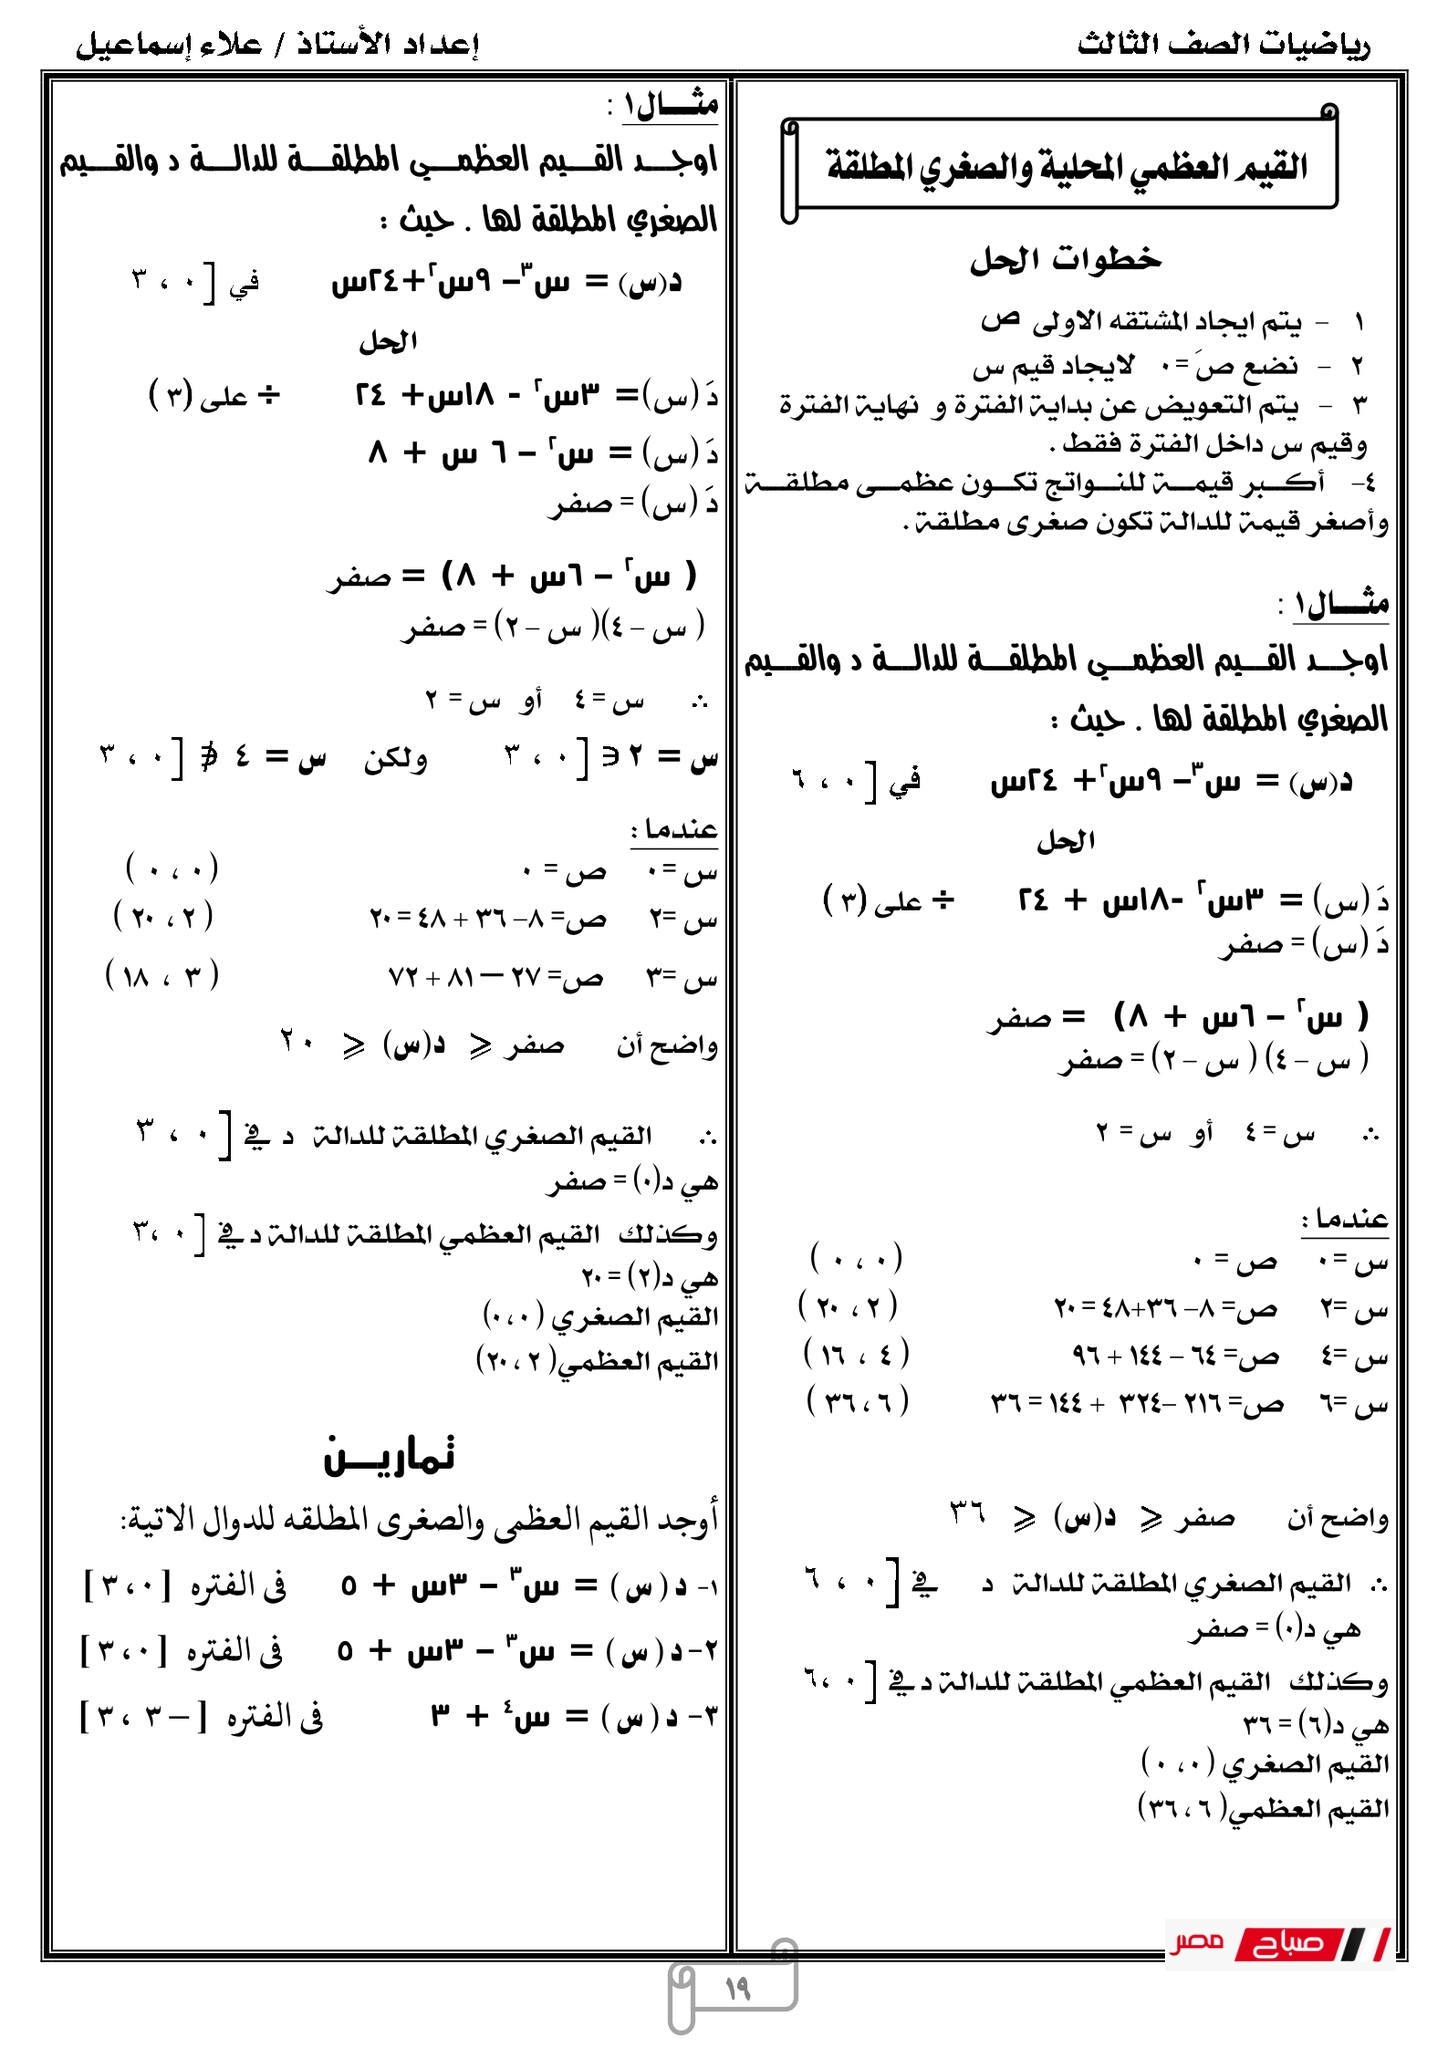 رياضيات الصف الثالث
إعداد الأستاذ / علاء إسماعيل
القيم العظمي المحلية والصغري المطلقة
خطوات الحل
١ – يتم ايجاد المشتقه الاولى ص
٢ – نضع صَ =٠ لايجاد قيم س
٣ – يتم التعويض عن بداية الفترة و نهاية الفترة
وقيم س داخل الفترة فقط .
٤- أكبر قيمة للنواتج تكون عظمى مطلقة
وأصغر قيمة للدالة تكون صغرى مطلقة .
مثال١ :
اوجد القيم العظمي المطلقة للدالة د والقيم
الصغري المطلقة لها . حيث :
د(س) = س٣– ٩س٢+ ٢٤س في [٠ ، ٦
الحل
دَ (س) = ٣س٢ -١٨س + ٢٤ ÷ على (٣ )
دَ (س) = صفر
( س٢ – ٦س + ٨) = صفر
( س – ٤) ( س – ٢) = صفر
∴ س = ٤ أو س = ٢
عندما :
س =٠ ص = ٠ (٠ ، ٠ )
س =٢ ص= ٨– ٣٦+٤٨ = ٢٠ ( ٢ ، ٢٠ )
س =٤ ص= ٦٤ – ١٤٤ + ٩٦ ( ٤ ، ١٦ )
س =٦ ص= ٢١٦ –٣٢٤ + ١٤٤ = ٣٦ ( ٦ ، ٣٦ )
واضح أن صفر ⩽ د(س) ⩽ ٣٦
∴ القيم الصغري المطلقة للدالة د في [٠ ، ٦
هي د(٠) = صفر
وكذلك القيم العظمي المطلقة للدالة د في [٠ ،٦
هي د(٦) = ٣٦
القيم الصغري (٠ ،٠ )
القيم العظمي( ٦ ، ٣٦)
مثال١ :
اوجد القيم العظمي المطلقة للدالة د والقيم
الصغري المطلقة لها . حيث :
د(س) = س٣– ٩س٢+٢٤س في [٠ ، ٣
الحل
دَ (س)= ٣س٢ - ١٨س+ ٢٤ ÷ على (٣ )
دَ (س) = س٢ – ٦ س + ٨
دَ (س) = صفر
( س٢ – ٦س + ٨) = صفر
( س – ٤)( س – ٢) = صفر
∴ س = ٤ أو س = ٢
س = ٢ ∈ [٠ ، ٣ ولكن س = ٤ ∉ [٠ ، ٣
عندما :
س =٠ ص = ٠ (٠ ، ٠ )
س =٢ ص= ٨– ٣٦ + ٤٨ = ٢٠ ( ٢ ، ٢٠ )
س =٣ ص= ٢٧ — ٨١ + ٧٢ ( ٣ ، ١٨ )
واضح أن صفر ⩽ د(س) ⩽ ٢٠
∴ القيم الصغري المطلقة للدالة د في [٠ ، ٣
هي د(٠) = صفر
وكذلك القيم العظمي المطلقة للدالة د في [٠ ،٣
هي د(٢) = ٢٠
القيم الصغري (٠،٠)
القيم العظمي( ٢ ، ٢٠)
تمارين
أوجد القيم العظمى والصغرى المطلقه للدوال الاتية:
١- د ( س ) = س٣ – ٣س + ٥ فى الفتره [٠، ٣ ]
٢- د ( س ) = س٣ – ٣س + ٥ فى الفتره [٠، ٣ ]
٣- د ( س ) = س٤ + ٣ فى الفتره [– ٣ ، ٣ ]
صباح مصر
١٩